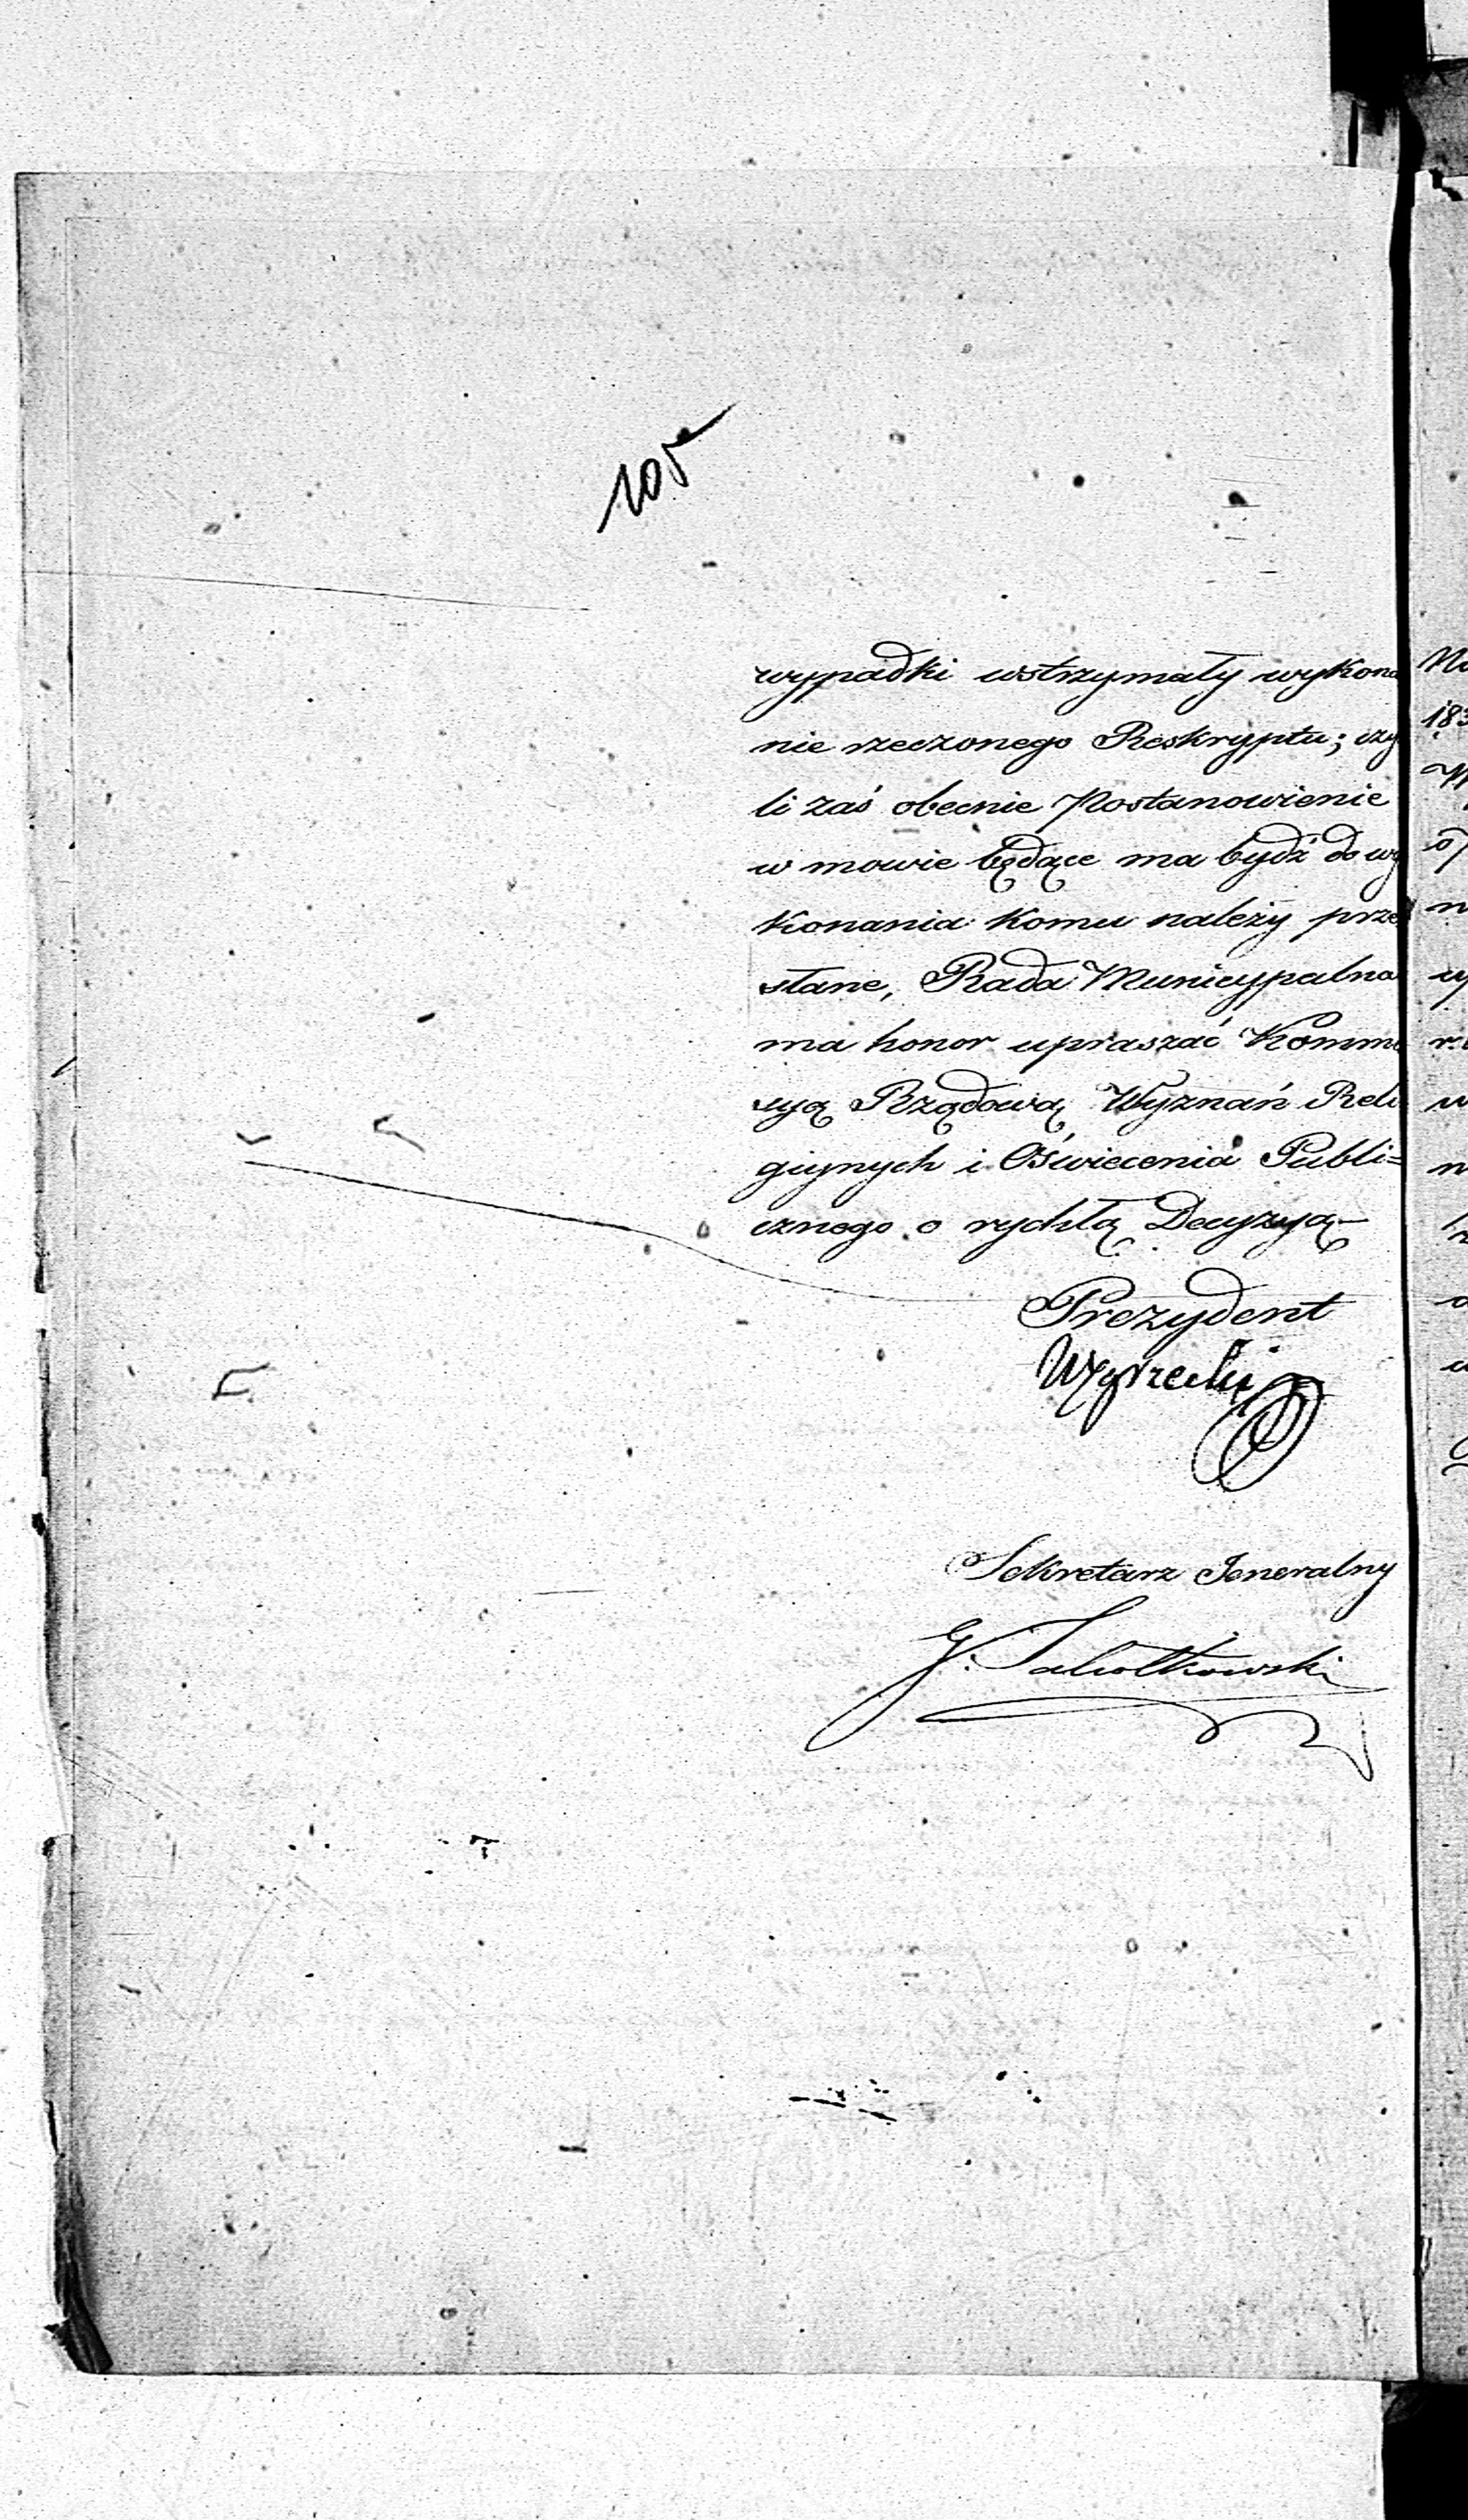 105
wypadki wstrzymały wykona
nie rzeczonego Reskryptu; czy
li zaś obecnie Postanowienie
w mowie będące ma bydź do wy
konania komu należy prze
słane, Rada Municypalna
ma honor upraszać Kommi
syą Rządową Wyznań Reli
giynych i Oświecenia Publi=
cznego o rychłą Decyzyą
Prezydent
Węgrzecki
Sekretarz Jeneralny